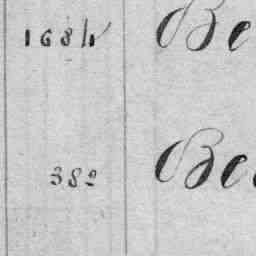 1684 Be
382 Be